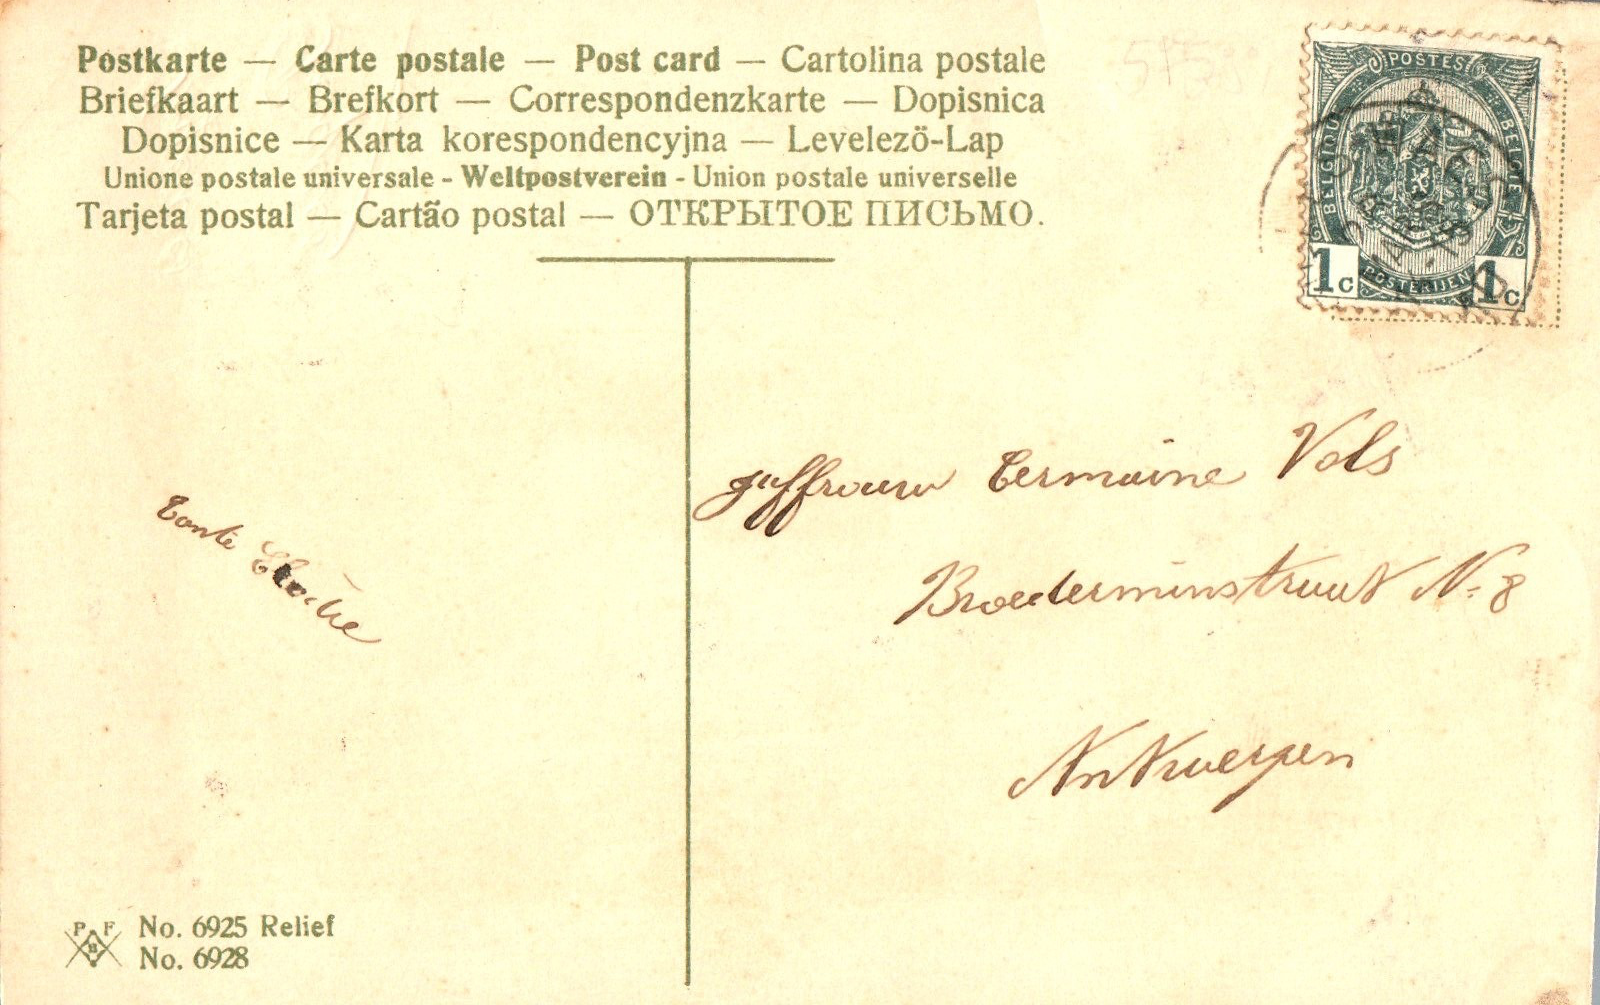 Postkarte — Carte postale — Post card — Cartolina postale
Briefkaart — Brefkort — Correspondenzkarte — Dopisnica
Dopisnice — Karta korespondencyjna — Levelező-Lap
Unione postale universale - Weltpostverein - Union postale universelle
Tarjeta postal — Cartão postal — ОТКРЫТОЕ ПИСЬМО.
POSTES
BELGIQUE
BELGIË
1c 1c
POSTERIJEN
Juffrouw Germaine Vols
Broederminstraat N: 8
Antwerpen
Tante
P F
B
No. 6925 Relief
No. 6928